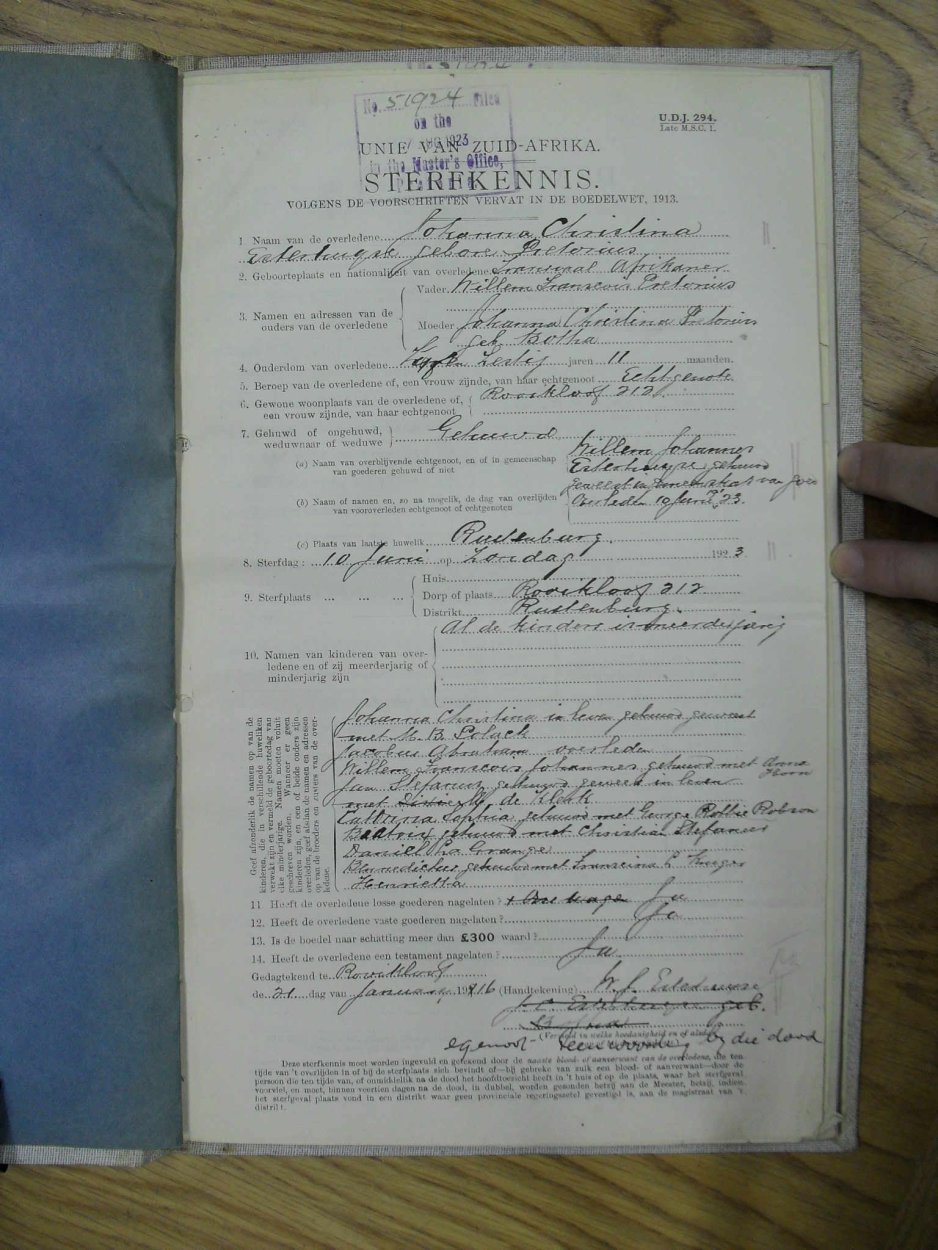 No. 51924 Filed
on the
1923
in the Master's Office,
U.D.J. 294.
Late M.S.C. 1.
UNIE VAN ZUID-AFRIKA.
STERFKENNIS.
VOLGENS DE VOORSCHRIFTEN VERVAT IN DE BOEDELWET, 1913.
1. Naam van de overledene Johanna Christina
Esterhuyse geboren Pretorius
2. Geboorteplaats en nationaliteit van overledene Transvaal Afrikaner
3. Namen en adressen van de ouders van de overledene
Vader Willem Franscois Pretorius
Moeder Johanna Christina Pretorius
geb. Botha
4. Ouderdom van overledene Zestig jaren 11 maanden.
5. Beroep van de overledene of, een vrouw zijnde, van haar echtgenoot Echtgenote
6. Gewone woonplaats van de overledene of, een vrouw zijnde, van haar echtgenoot Rooikloof 212
7. Gehuwd of ongehuwd, weduwnaar of weduwe Gehuwd
(a) Naam van overblijvende echtgenoot, en of in gemeenschap van goederen gehuwd of niet Willem Johannes
Esterhuyse gehuwd
geweest in gemeenschap van goed
(b) Naam of namen en, zo na mogelijk, de dag van overlijden van vooroverleden echtgenoot of echtgenoten Overleden 10 Junie '23.
(c) Plaats van laatste huwelik Rustenburg.
8. Sterfdag: 10 Juni op Zondag 1923
9. Sterfplaats ... ... ...
Huis
Dorp of plaats Rooikloof 212
Distrikt Rustenburg.
10. Namen van kinderen van overledene en of zij meerderjarig of minderjarig zijn
Al de kinders is meerderjarig
Geef afzonderlik de namen op van de kinderen, die in verschillende huweliken verwekt zijn en vermeld de geboortedag van elke minderjarige. Namen moeten voluit geschreven worden. Wanneer er geen kinderen zijn, en een of beide ouders zijn overleden, geef alsdan de namen en adressen op van de broeders en zusters van de overledene.
Johanna Christina in leven gehuwd geweest
met M. B. Polack
Jacobus Abraham overleden
Willem Franscois Johannes gehuwd met Anna
Jan Stefanus gehuwd geweest in leven
met de Klerk
Catharia Sophia gehuwd met George Robson
Beatrix gehuwd met Christian Stefanus
Daniel Grange
Benedictus gehuwd met Franscina C. Kruger
Henrietta
11. Heeft de overledene losse goederen nagelaten? Ja
12. Heeft de overledene vaste goederen nagelaten? Ja
13. Is de boedel naar schatting meer dan £300 waard?
14. Heeft de overledene een testament nagelaten? Ja
Gedagtekend te Rooikloof
de 21 dag van Januarie 1916 (Handtekening) W. J. Esterhuyse
J. C. Esterhuyse geb.
(Vermeld in welke hoedanigheid en of alsdan
by die dood
Deze sterfkennis moet worden ingevuld en getekend door de naaste bloed- of aanverwant van de overledene, die ten
tijde van 't overlijden in of bij de sterfplaats zich bevindt of—bij gebreke van zulk een bloed- of aanverwant—door de
persoon die ten tijde van, of onmiddelik na de dood het hoofdtoezicht heeft in 't huis of op de plaats, waar het sterfgeval
voorviel, en moet, binnen veertien dagen na de dood, in dubbel, worden gezonden hetzij aan de Meester, hetzij, indien
het sterfgeval plaats vond in een distrikt waar geen provinciale regeringszetel gevestigd is, aan de magistraat van 't
distrikt.